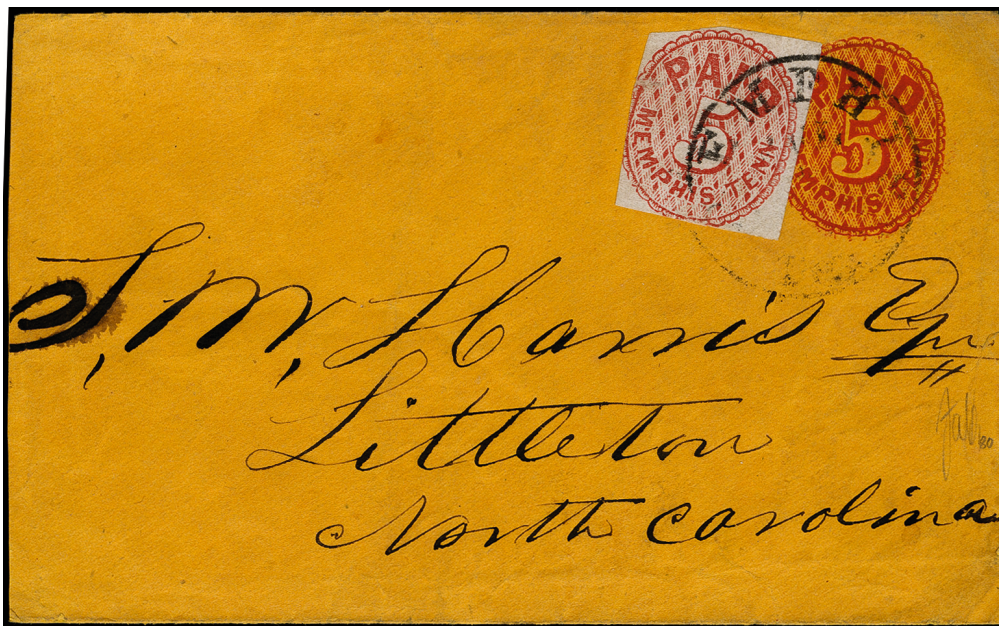 PAID
5
MEMPHIS, TENN
PAID
5
MEMPHIS, TENN
S, W, Harris Esqr
Littleton
North Carolina